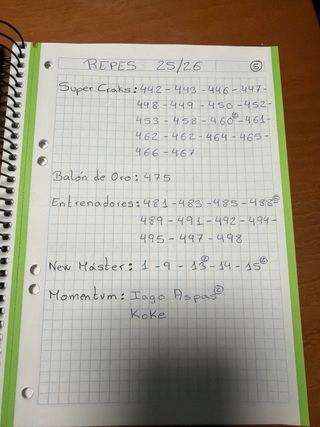 REPES 25/26 5
Super Craks: 442 - 443 - 446 - 447 -
448 - 449 - 450 - 452 -
453 - 458 - 460② - 461 -
462 - 462 - 464 - 465 -
466 - 467
Balón de Oro: 475
Entrenadores: 481 - 483 - 485 - 488② -
489 - 491 - 492 - 494 -
495 - 497 - 498
New Máster: 1 - 9 - 13② - 14 - 15②
Momentum: Iago Aspas②
Koke